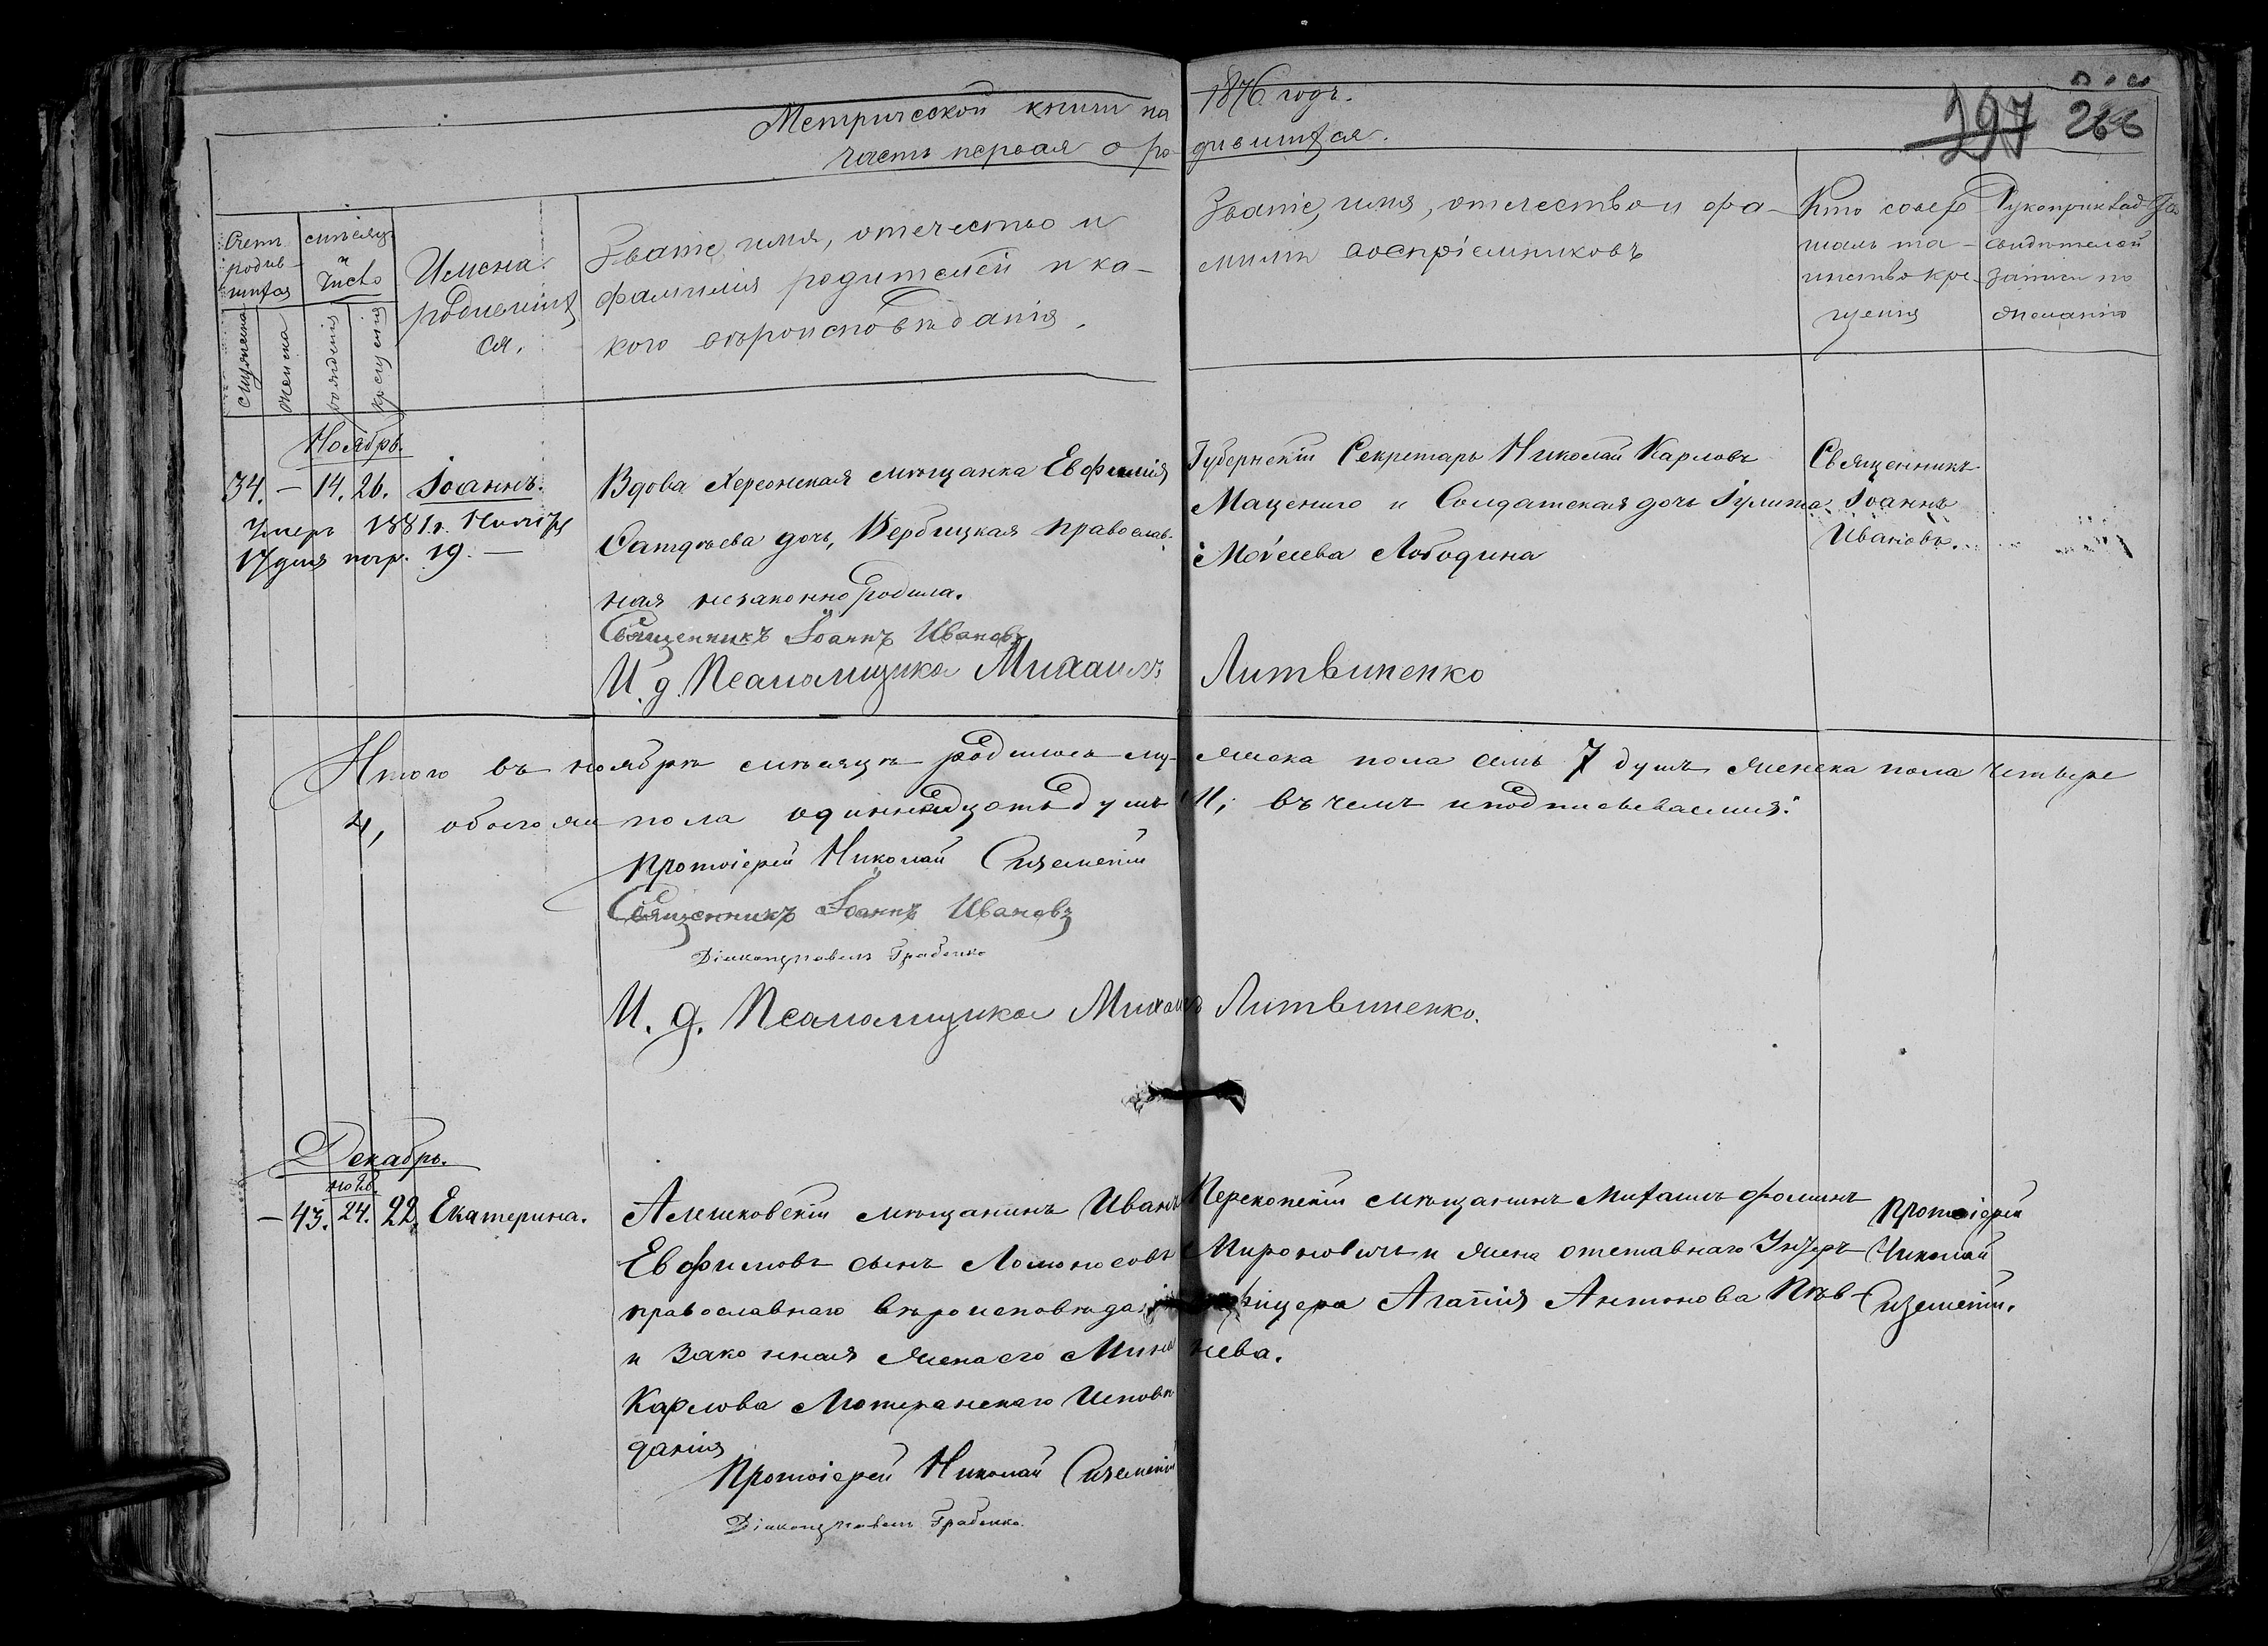 Метрической книги на 1876 годъ.
часть первая о родившихся.
297 266
Счетъ родившихся
мѣсяцъ и число
Мужеска
Женска
рожденія
крещенія
Имена родившихся.
Званіе, имя, отечество и
фамилія родителей и ка-
кого вѣроисповѣданія.
Званіе, имя, отечество и фа-
миліи воспріемниковъ
Кто совер
шалъ та-
инство кре-
щенія
Рукоприклад
свидѣтелей
записи по
желанію
Ноябрь.
34. – 14. 26. Іоаннъ.
Умеръ 1881 г. Ноября
17 дня погр. 19. –
Вдова Херсонская мѣщанка Евфимія
дочь, Вербицкая православ-
ная незаконно родила.
Священникъ Іоаннъ Ивановъ
И. д. Псаломщика Михаилъ Литвиненко
Губернскій Секретарь Николай Карловъ
и Солдатская дочь Іулита
Моѵсеева Лободина
Священникъ
Іоаннъ
Ивановъ.
Итого въ ноябрѣ мѣсяцѣ родилось му- жеска пола семь 7 душъ женска пола четыре
4, обоего же пола одиннадцать душъ 11; въ чемъ и подписываемся:
Протоіерей Николай
Священникъ Іоаннъ Ивановъ
Діаконъ Павелъ Грабенко
И. д. Псаломщика Михаилъ Литвиненко.
Декабрь.
нояб.
– 43. 24. 22. Екатерина.
Алешковскій мѣщанинъ Иванъ
Евфимовъ сынъ Ломоносовъ
православнаго вѣроисповѣданія
и законная жена его Мина
Карлова Лютеранскаго Исповѣ
данія
Протоіерей Николай
Діаконъ Павелъ Грабенко.
Перекопскій мѣщанинъ Михаилъ Фоминъ
Мироновичъ и жена отставнаго Унтеръ
фицера Агапія Антонова Пѣв-
нева.
Протоіерей
Николай